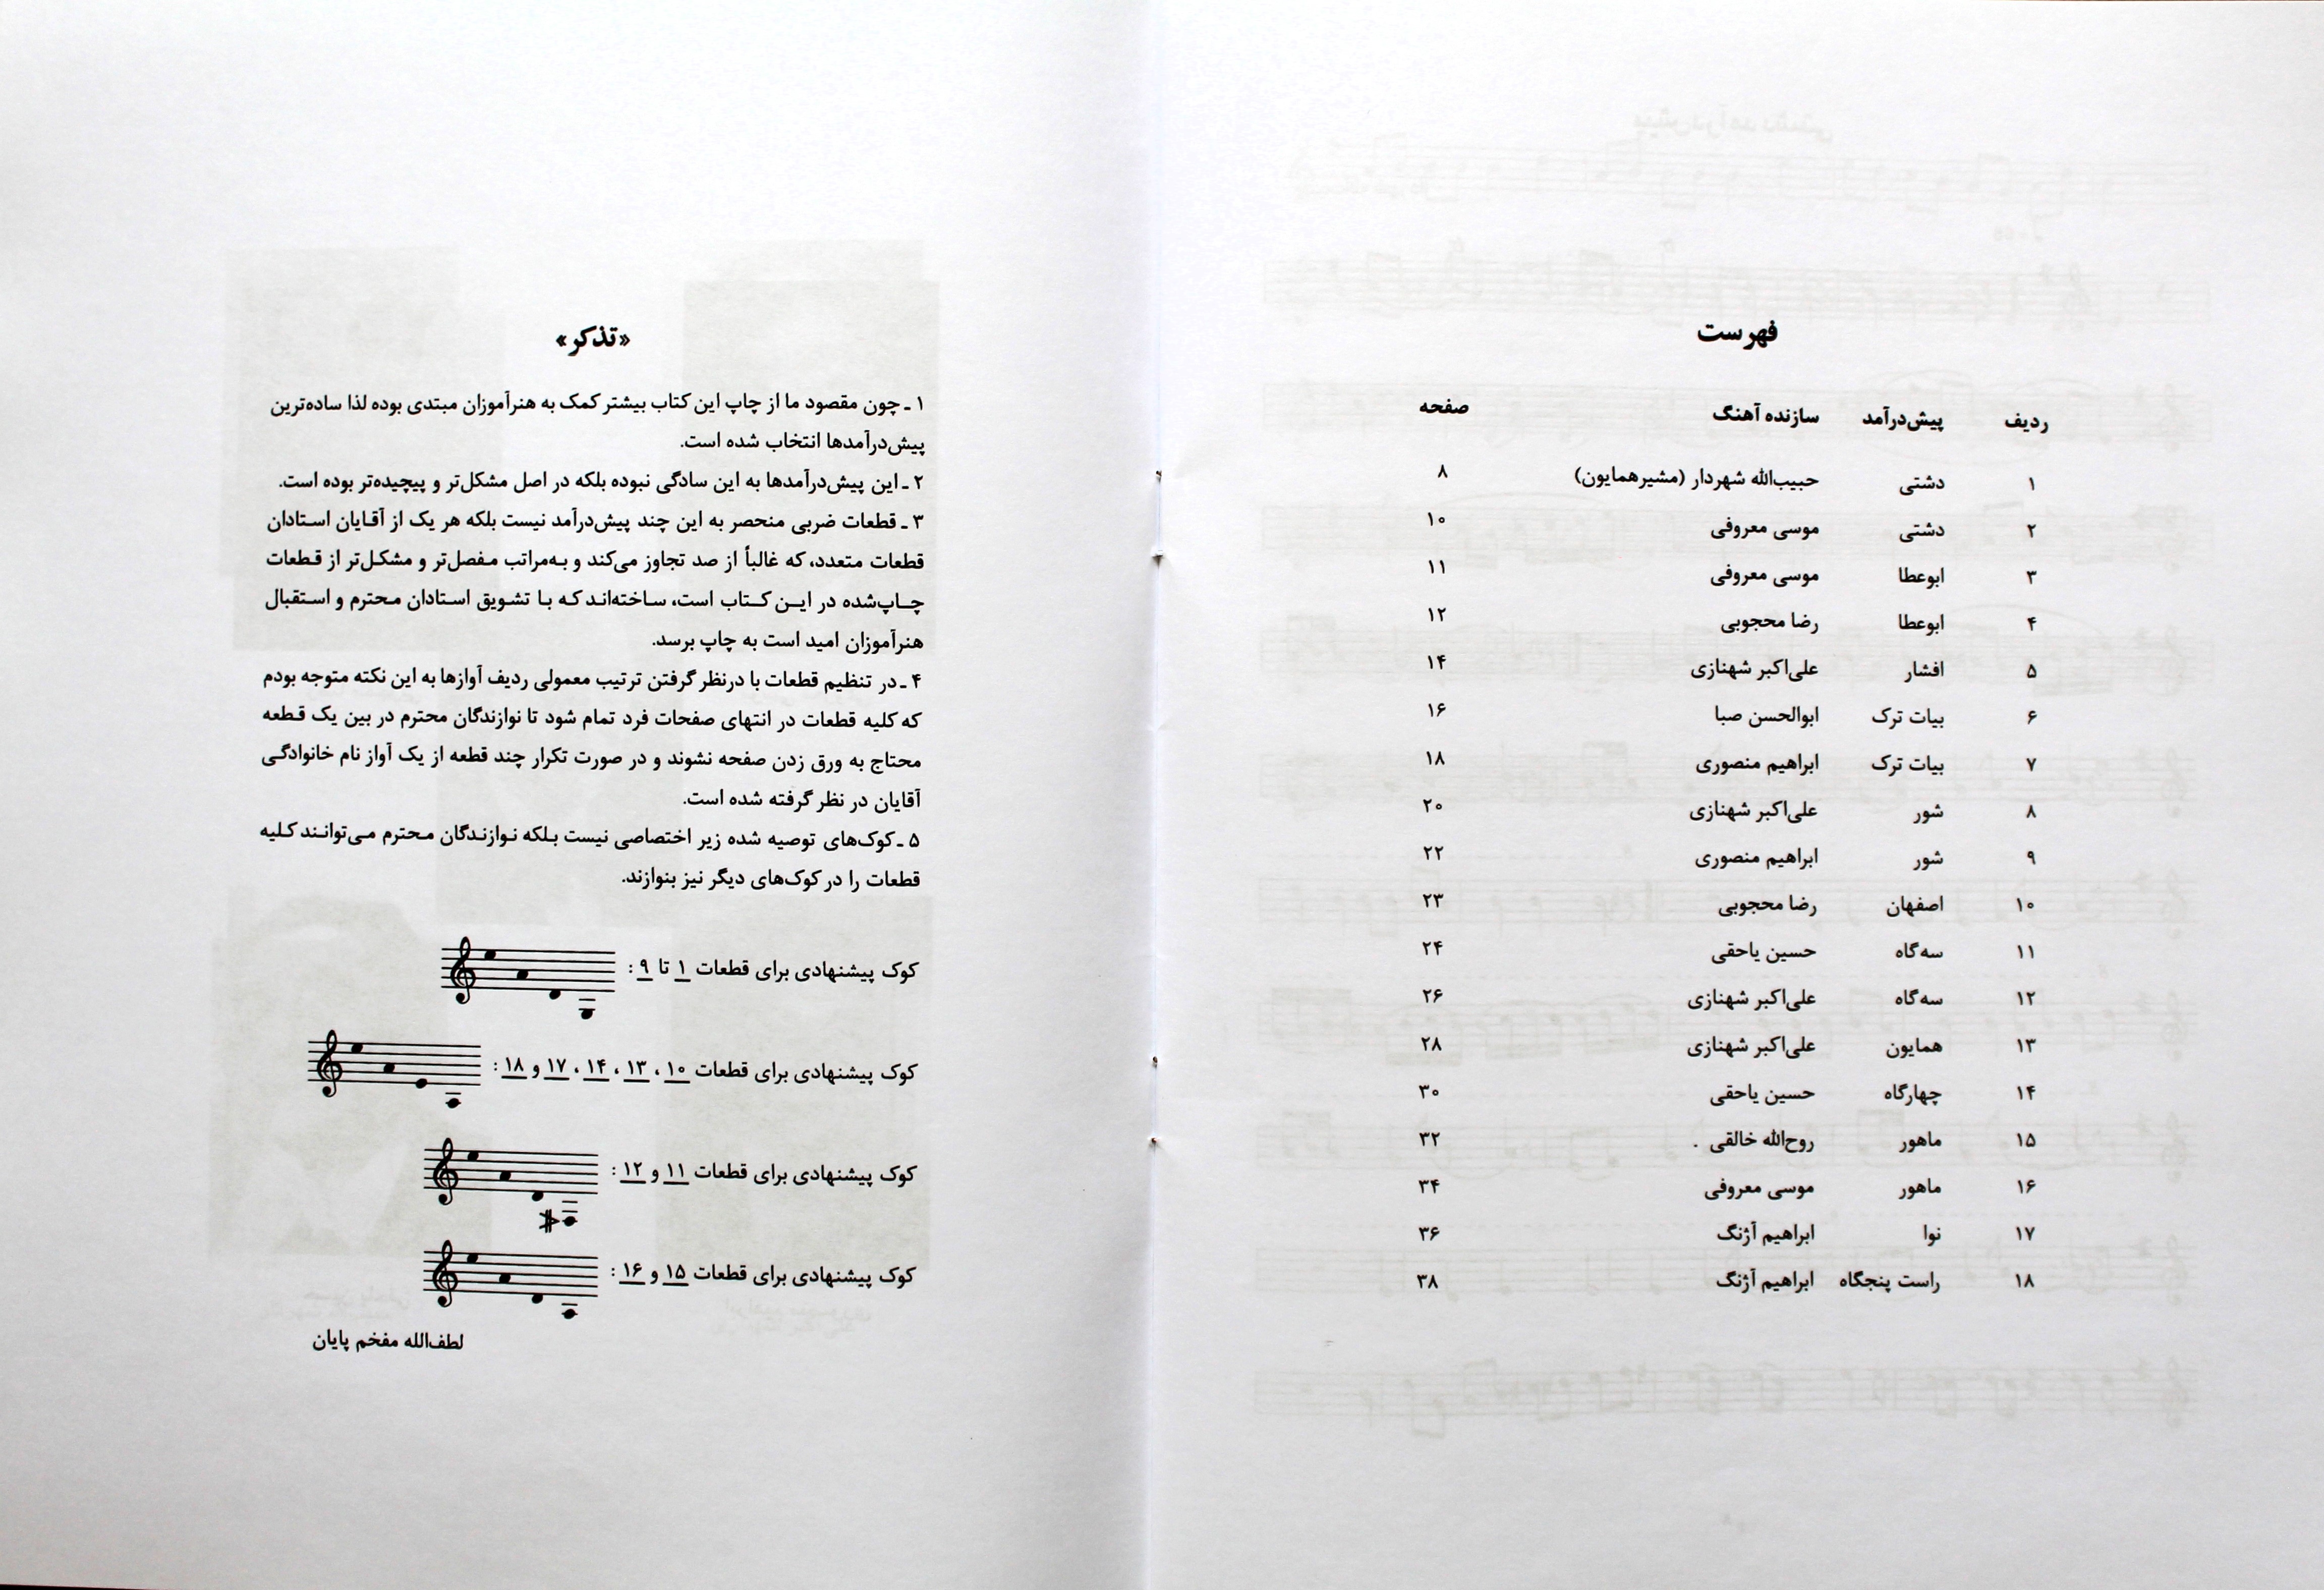 فهرست
ردیف پیش‌درآمد سازنده آهنگ صفحه
۱ دشتی حبیب‌الله شهردار (مشیرهمایون) ۸
۲ دشتی موسی معروفی ۱۰
۳ ابوعطا موسی معروفی ۱۱
۴ ابوعطا رضا محجوبی ۱۲
۵ افشار علی‌اکبر شهنازی ۱۴
۶ بیات ترک ابوالحسن صبا ۱۶
۷ بیات ترک ابراهیم منصوری ۱۸
۸ شور علی‌اکبر شهنازی ۲۰
۹ شور ابراهیم منصوری ۲۲
۱۰ اصفهان رضا محجوبی ۲۳
۱۱ سه‌گاه حسین یاحقی ۲۴
۱۲ سه‌گاه علی‌اکبر شهنازی ۲۶
۱۳ همایون علی‌اکبر شهنازی ۲۸
۱۴ چهارگاه حسین یاحقی ۳۰
۱۵ ماهور روح‌الله خالقی . ۳۲
۱۶ ماهور موسی معروفی ۳۴
۱۷ نوا ابراهیم آژنگ ۳۶
۱۸ راست پنجگاه ابراهیم آژنگ ۳۸
«تذکر»
۱ ـ چون مقصود ما از چاپ این کتاب بیشتر کمک به هنرآموزان مبتدی بوده لذا ساده‌ترین
پیش‌درآمدها انتخاب شده است.
۲ ـ این پیش‌درآمدها به این سادگی نبوده بلکه در اصل مشکل‌تر و پیچیده‌تر بوده است.
۳ ـ قطعات ضربی منحصر به این چند پیش‌درآمد نیست بلکه هر یک از آقایان استادان
قطعات متعدد، که غالباً از صد تجاوز می‌کند و به‌مراتب مفصل‌تر و مشکل‌تر از قطعات
چاپ‌شده در این کتاب است، ساخته‌اند که با تشویق استادان محترم و استقبال
هنرآموزان امید است به چاپ برسد.
۴ ـ در تنظیم قطعات با درنظر گرفتن ترتیب معمولی ردیف آوازها به این نکته متوجه بودم
که کلیه قطعات در انتهای صفحات فرد تمام شود تا نوازندگان محترم در بین یک قطعه
محتاج به ورق زدن صفحه نشوند و در صورت تکرار چند قطعه از یک آواز نام خانوادگی
آقایان در نظر گرفته شده است.
۵ ـ کوک‌های توصیه شده زیر اختصاصی نیست بلکه نوازندگان محترم می‌توانند کلیه
قطعات را در کوک‌های دیگر نیز بنوازند.
کوک پیشنهادی برای قطعات ۱ تا ۹ :
کوک پیشنهادی برای قطعات ۱۰ ، ۱۳ ، ۱۴ ، ۱۷ و ۱۸ :
کوک پیشنهادی برای قطعات ۱۱ و ۱۲ :
کوک پیشنهادی برای قطعات ۱۵ و ۱۶ :
لطف‌الله مفخم پایان